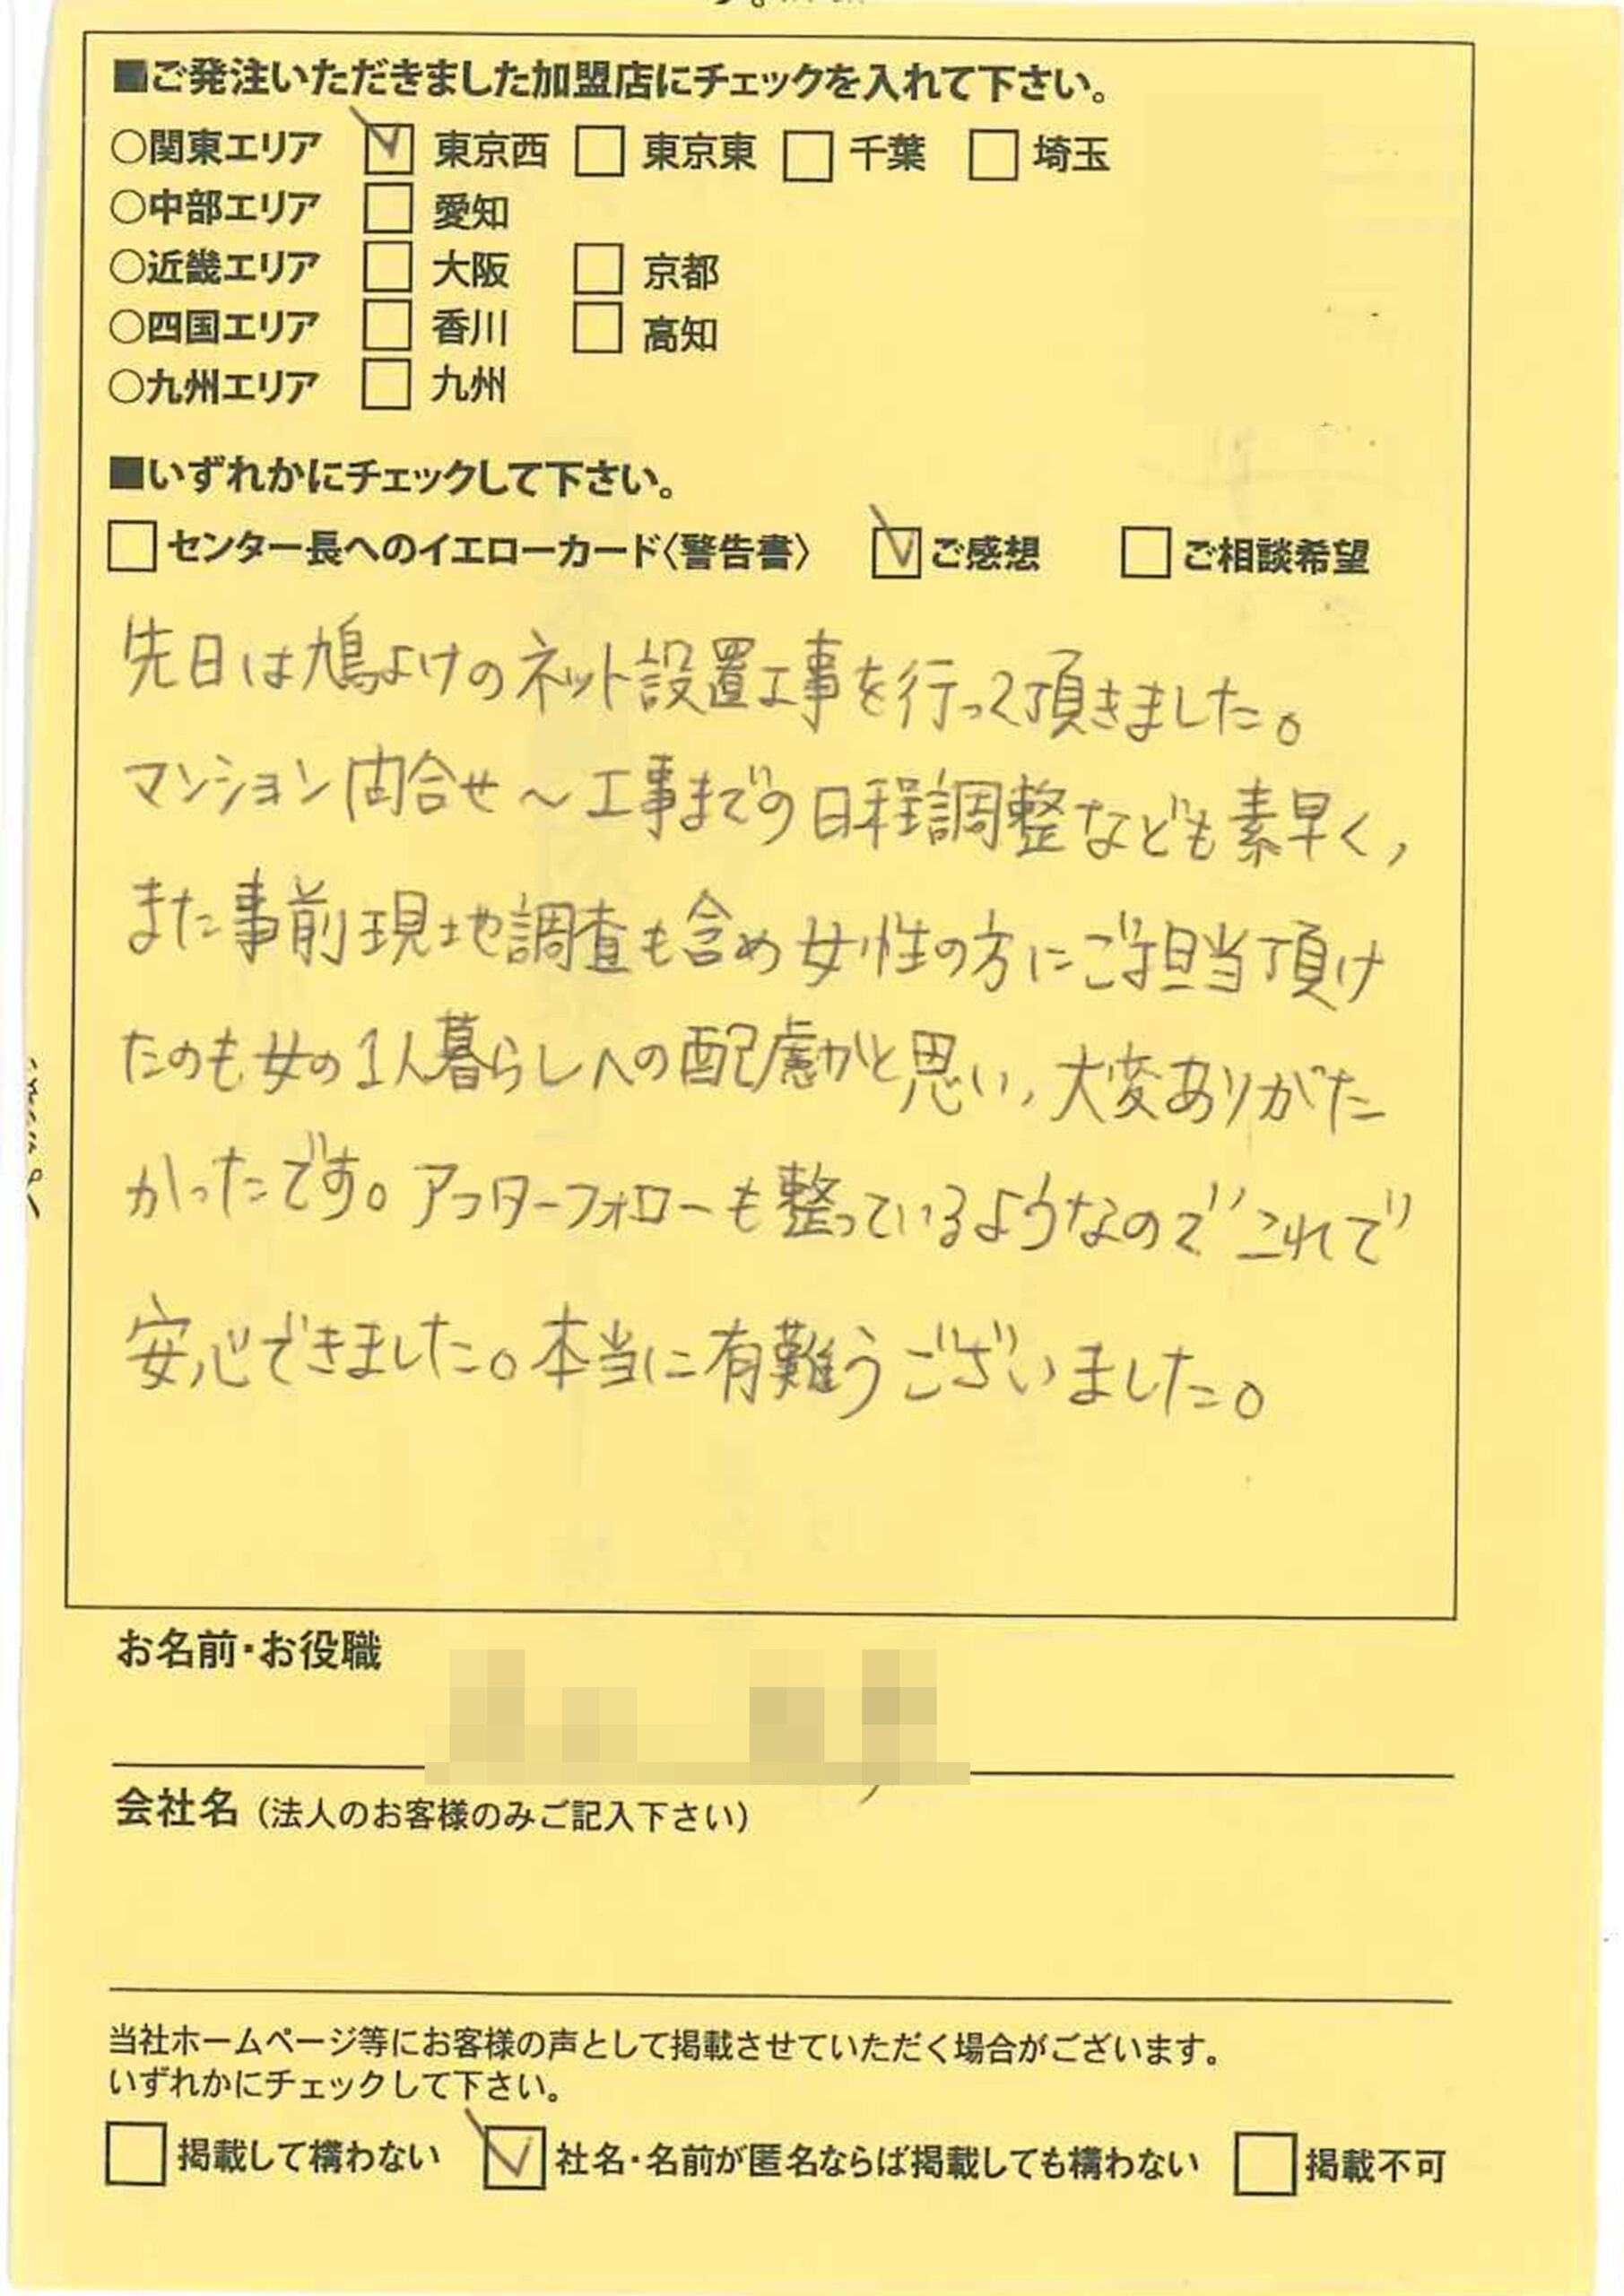 ■ご発注いただきました加盟店にチェックを入れて下さい。
○関東エリア ☑ 東京西 □ 東京東 □ 千葉 □ 埼玉
○中部エリア □ 愛知
○近畿エリア □ 大阪 □ 京都
○四国エリア □ 香川 □ 高知
○九州エリア □ 九州
■いずれかにチェックして下さい。
□センター長へのイエローカード〈警告書〉 ☑ご感想 □ご相談希望
先日は鳩よけのネット設置工事を行って頂きました。
マンション問合せ～工事までの日程調整なども素早く,
また事前現地調査も含め女性の方にご担当頂け
たのも女の1人暮らしへの配慮かと思い,大変ありがた
かったです。アフターフォローも整っているようなのでこれで
安心できました。本当に有難うございました。
お名前・お役職
会社名(法人のお客様のみご記入下さい)
当社ホームページ等にお客様の声として掲載させていただく場合がございます。
いずれかにチェックして下さい。
□掲載して構わない ☑社名・名前が匿名ならば掲載しても構わない □掲載不可